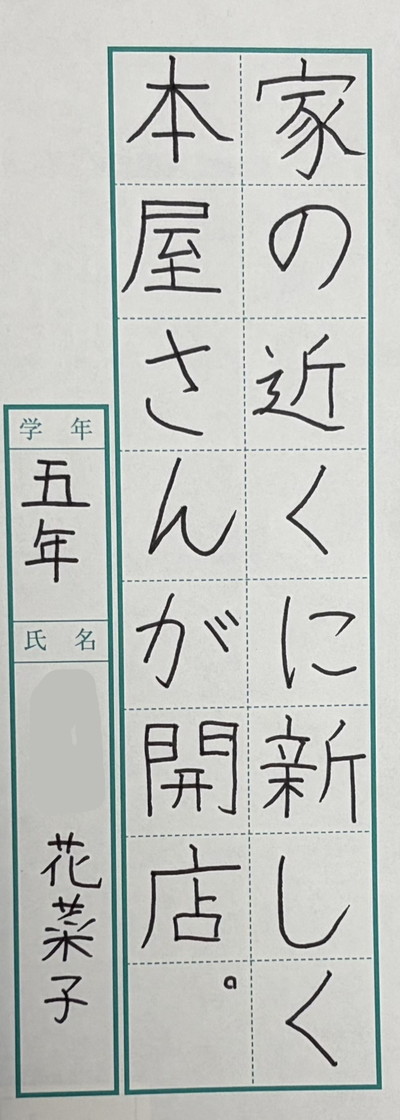 家の近くに新しく
本屋さんが開店。
学年
五年
氏名
花菜子